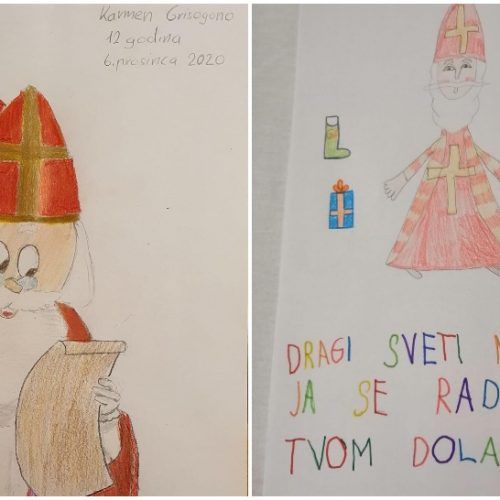 Karmen Grisogono
12 godina
6. prosinca 2020
DRAGI SVETI
JA SE RAD
TVOM DOLA